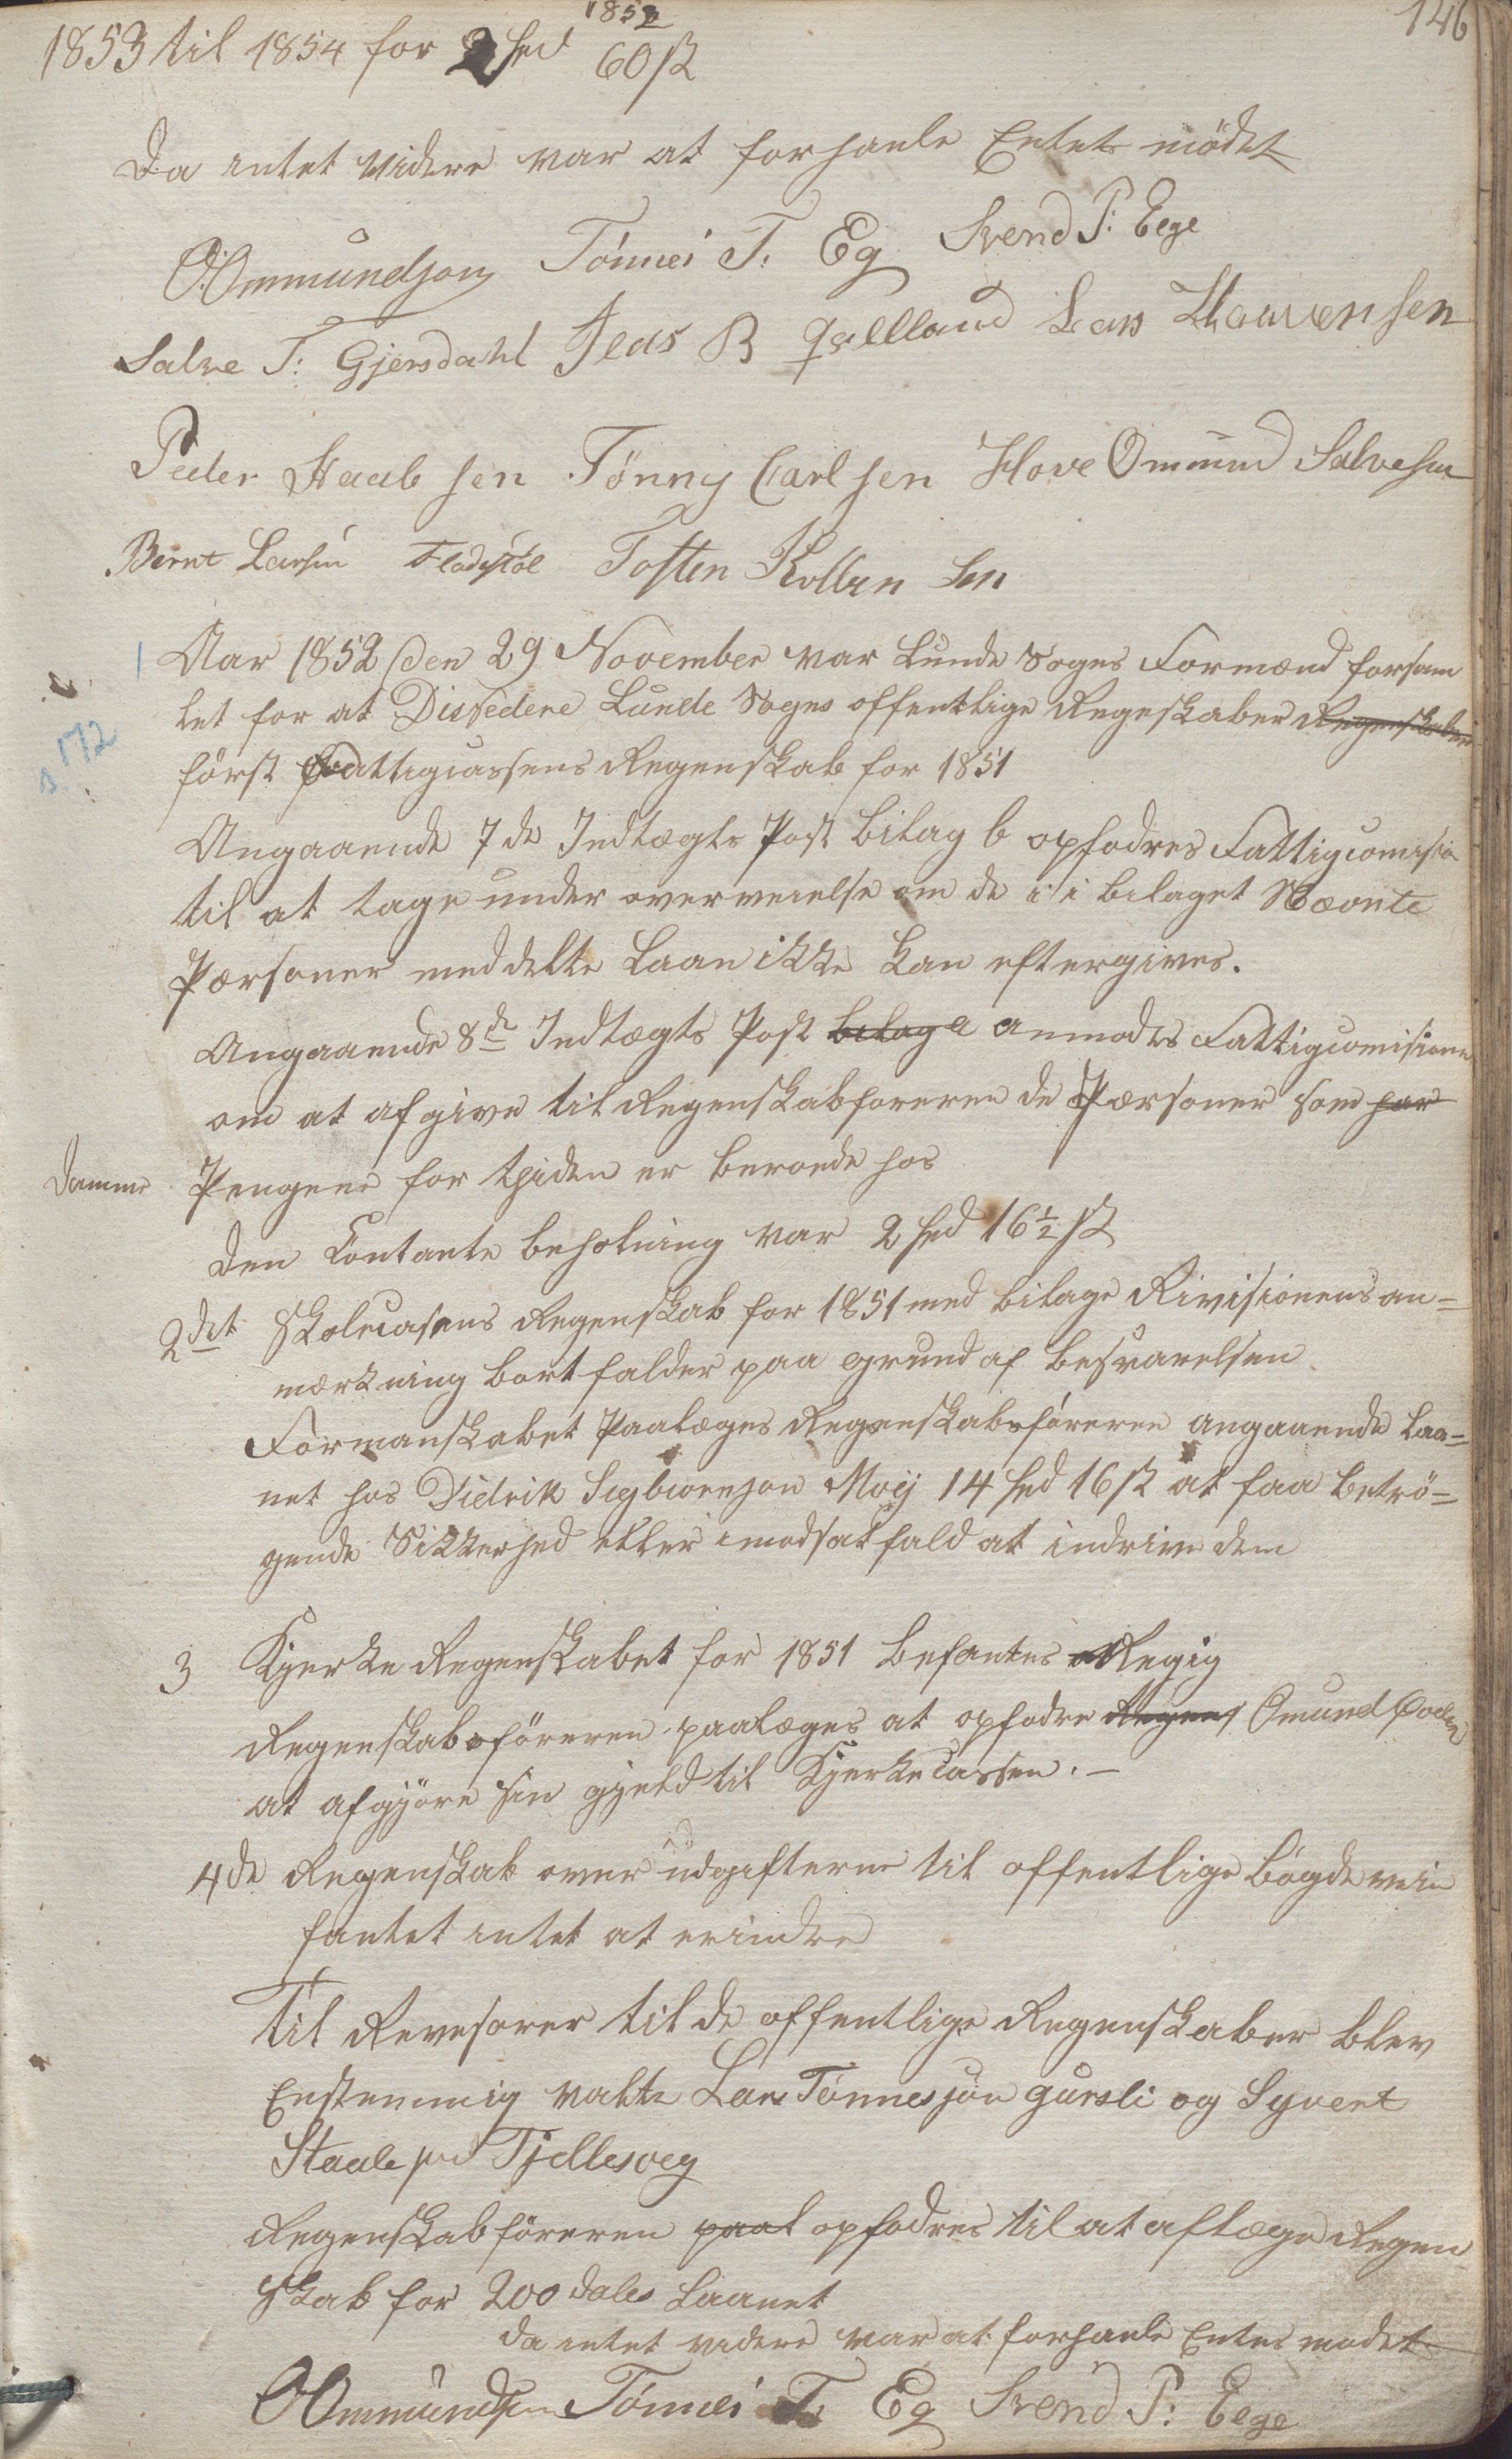 146
1853 til 1854 for 2 spd 1852 60 ß
Da intet videre var at forhanle Entet mödet
O Ommundsøn Tönnes T. Eg Svend P: Eege
Salve T: Gjersdahl Jeas B Qvelland Lars Lauvensen
Peder Staalesen Tønny Carlsen Hove Ommund Salvesen
Bernt Larsen Fladstöl Tosten Kollen sen
1 Aar 1852 den 29 November var Lunde Sogns Formænd forsam
let for at Disedere Lunde Sogns offentlige Regeskaber Regenskaber
s. 172
först Fattigcassens Regenskab for 1851
Angaaende 7de Indtægts Post bilag b opfodres Fattigcomision
til at tage under overveielse om de i i bilaget Nævnte
Personer meddelte Laan ikke kan eftergives.
Angaaende 8de Indtægts Post bilage anmodes Fattigcomisionen
om at afgive til Regenskabforeren de Personer som har
Damme Pengene for tiden er beroende hos
Den Contante beholning var 2 spd 16½ ß
2det Skolecasens Regenskab for 1851 med bilage Rivisionens an=
mærkning bortfalder paa grund af besvarelsen
Formanskabet Paalæges Regenskabsföreren angaaende Laa=
net hos Didrik Sigbiørnson Moij 14 spd 16 ß at faa betrö=
gende Sikkerhed eller imodsat fald at indrive dem
3 Kjerke Regenskabet for 1851 befantes Regig
Regenskabsföreren paalæges at opfodre Regens Omund
at afgjöre sin gjeld til Kjerkecassen. –
4de Regenskab over udgifterne til offentlige bögdeveie
fantet intet at erindre
Til Revesorer til de offentlige Regenskaber blev
Enstemmig valte Lars Tönnesson Gursli og Syvert
Staalesen Tjellesveg
Regenskabföreren paal opfodres til at aflæge Regen
skab for 200 Dales Laanet
Da intet videre var at forhanle Entes modet
O Ommundsen Tönnes T Eg Svend P: Eege